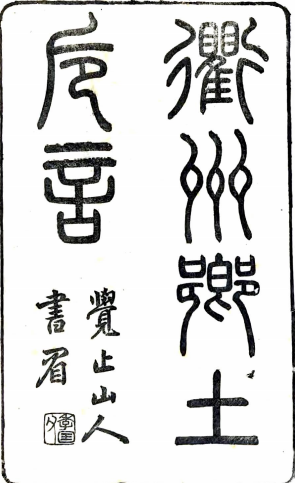 衢州鄉土
卮言
覺止山人
書眉